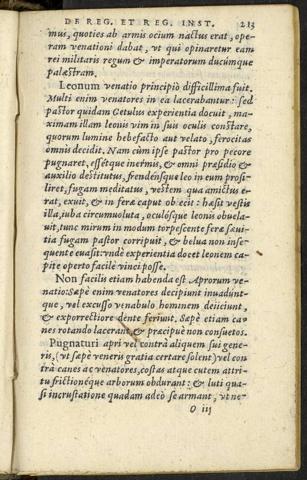 DE REG. ET REG. INST. 213
mus, quoties ab armis ocium nactus erat, ope-
ram venationi dabat, vt qui opinaretur eam
rei militaris regum & imperatorum ducúmque
palæstram.
Leonum venatio principiò difficillima fuit.
Multi enim venatores in ea lacerabantur: sed
pastor quidam Getulus experientia docuit, ma-
ximam illam leonis vim in suis oculis constare,
quorum lumine hebefacto aut velato, ferocitas
omnis decidit. Nam cùm ipse pastor pro pecore
pugnaret, essétque inermis, & omni præsidio &
auxilio destitutus, frendénsque leo in eum prosi-
liret, fugam meditatus, vestem qua amictus e-
rat, exuit, & in feræ caput obiecit: hæsit vestis
illa, iuba circumuoluta, oculósque leonis obuela-
uit, tunc mirum in modum torpescente feræ sæui-
tia fugam pastor corripuit, & belua non inse-
quente euasit: vndè experientia docet leonem ca-
pite operto facilè vinci posse.
Non facilis etiam habenda est Aprorum ve-
natio: Sæpè enim venatores decipiunt inuadúnt-
que, vel excusso venabulo hominem deiiciunt,
& exporrectiore dente feriunt. Sæpè etiam ca-
nes rotando lacerant & præcipuè non consuetos.
Pugnaturi apri vel contrà aliquem sui gene-
ris, (vt sæpè veneris gratia certare solent) vel con
trà canes ac venatores, costas atque cutem attri-
tu frictionéque arborum obdurant: & luti qua-
si incrustatione quadam adeò se armant, vt ne-
O iii